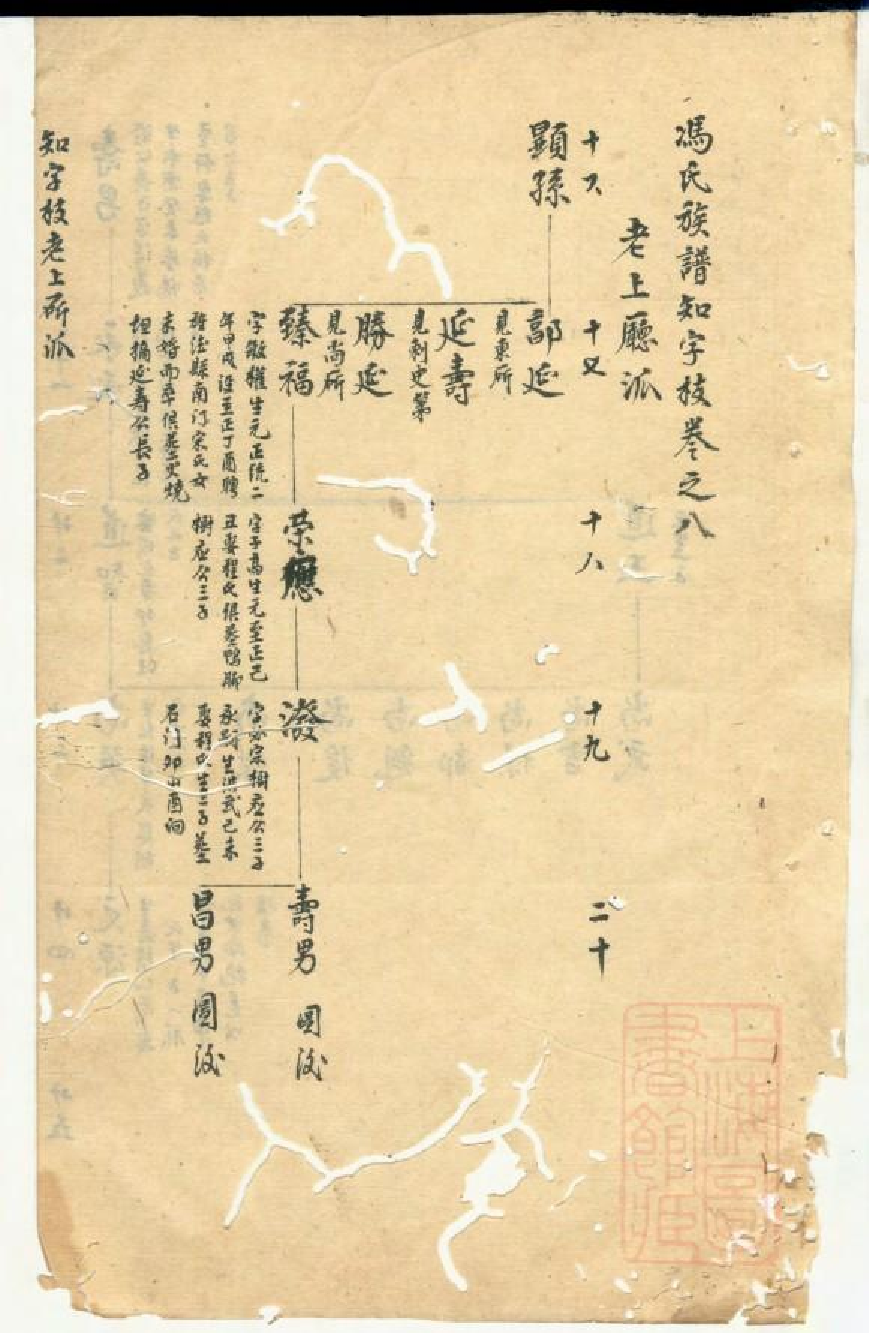 馮氏族譜知字枝卷之八
老上廳派
十六
十七
十八
十九
二十
顯孫
郡延
見東所
延壽
見刺史第
勝延
見尚所
臻福
字散權生元正統二
年甲戌沒至正丁酉聘
南門宋氏女
未婚而卒俱葬火燒
坦摘延壽公長子
荣應
字子高生元至正己
丑娶程氏俱葬鴨腳
樹应公三子
潑
字必宗樹应公三子
永嗣生洪武己未
娶程氏生二子葬
石门卯山酉向
壽男 圖後
昌男 圖後
知字枝老上所派
上海圖書館藏